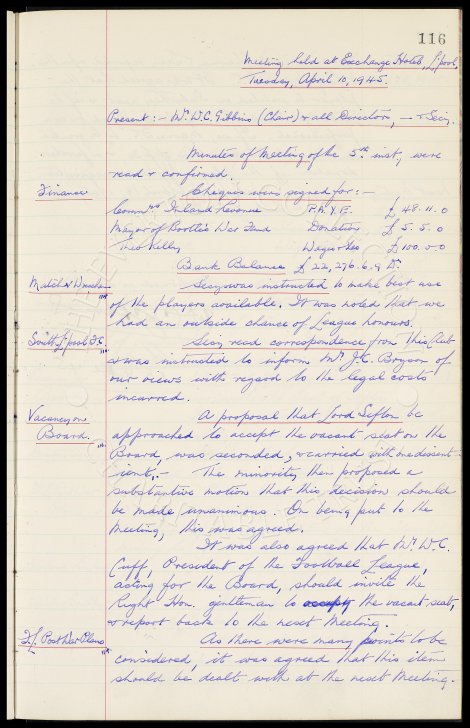 116
Meeting held at Exchange Hotel, L'pool,
Tuesday, April 10, 1945.
Present :- Mr. W.C. Gibbins (Chair) & all Directors, — & Secy.
Minutes of Meeting of the 5th inst, were
read & confirmed.
Finance Cheques were signed for :-
Commrs Inland Revenue P.A.Y.E. £ 48.11.0
Mayor of Bootle's War Fund Donation £ 5.5.0
Theo Kelly Wages &c £100.0.0
Bank Balance £22,276.6.9
Match v Secy was instructed to make best use
of the players available. It was noted that we
had an outside chance of League honours.
South L'pool F.C. Secy read correspondence from this Club
& was instructed to inform Mr J.C. Bryson of
our views with regard to the legal costs
incurred.
Vacancy on A proposal that Lord Sefton be
Board. approached to accept the vacant seat on the
Board, was seconded, & carried with one dissent-
ient.- The minority then proposed a
substantive motion that this decision should
be made unanimous. On being put to the
Meeting, this was agreed.
It was also agreed that Mr. W.C.
Cuff, President of the Football League,
acting for the Board, should invite the
Right Hon. gentleman to accept the vacant seat,
& report back to the next Meeting.
Post War Plans As there were many points to be
considered, it was agreed that this item
should be dealt with at the next Meeting.